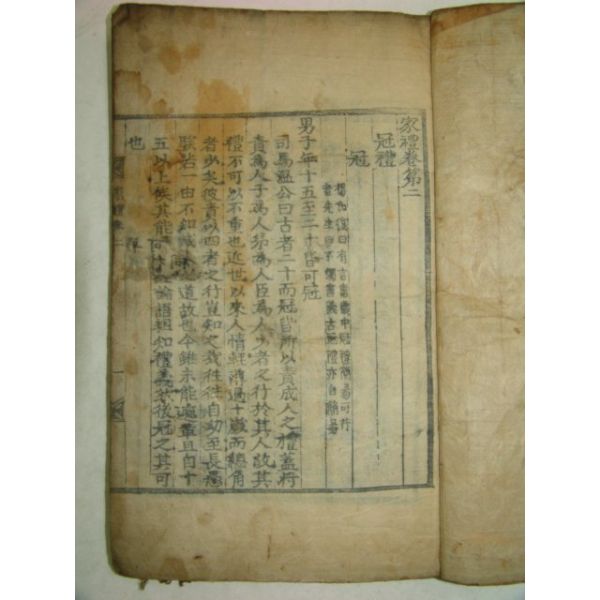 家禮卷第二
冠禮
冠
楊氏復曰有言書儀中冠禮簡易可行
者先生曰不獨書儀古冠禮亦自簡易
男子年十五至二十皆可冠
司馬溫公曰古者二十而冠皆所以責成人之禮蓋將
責爲人子爲人弟爲人臣爲人少者之行於其人故其
禮不可以不重也近世以來人情輕薄過十歲而總角
者少矣彼責以四者之行豈知之哉往往自幼至長愚
騃若一由不知成人之道故也今雖未能遽革且自十
五以上俟其能 論語粗知禮義然後冠之其可
也